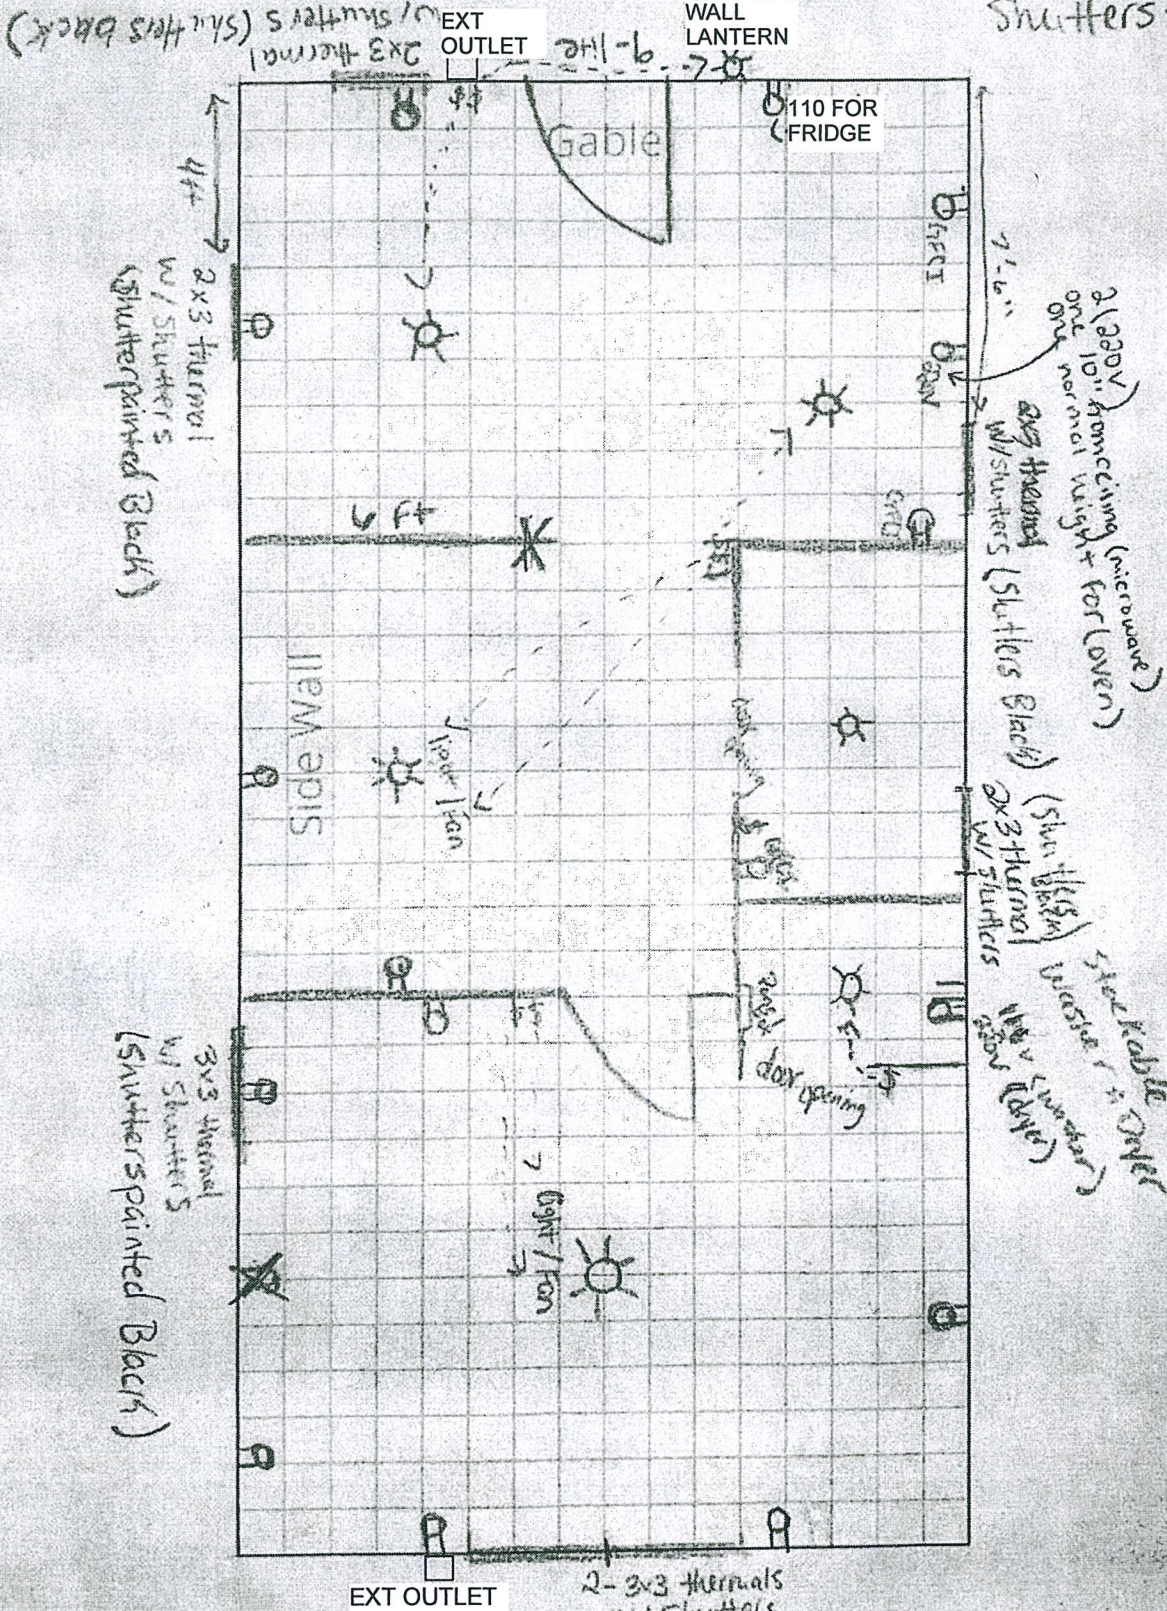 Shutters
2x3 thermal
w/ Shutters (Shutters black)
EXT
OUTLET
9-lite
WALL
LANTERN
$$
110 FOR
FRIDGE
Gable
4ft
GFCI
7'-6"
2x3 thermal
w/ Shutters
(Shutterpainted Black)
220V
2(220V)
one 10" from ceiling (microwave)
one normal height for (oven)
2x3 thermal
w/ shutters (Shutters Black)
6 Ft
GFCI
Side Wall
light / Fan
door opening
$
GFCI
(Shutters
Black)
2x3 thermal
w/ Shutters
Stackable
Washer & Dryer
110v (washer)
220v (dryer)
$
door opening
3x3 thermal
w/ Shutters
(Shutterspainted Black)
light / Fan
EXT OUTLET
2- 3x3 thermals
w/ Shutters